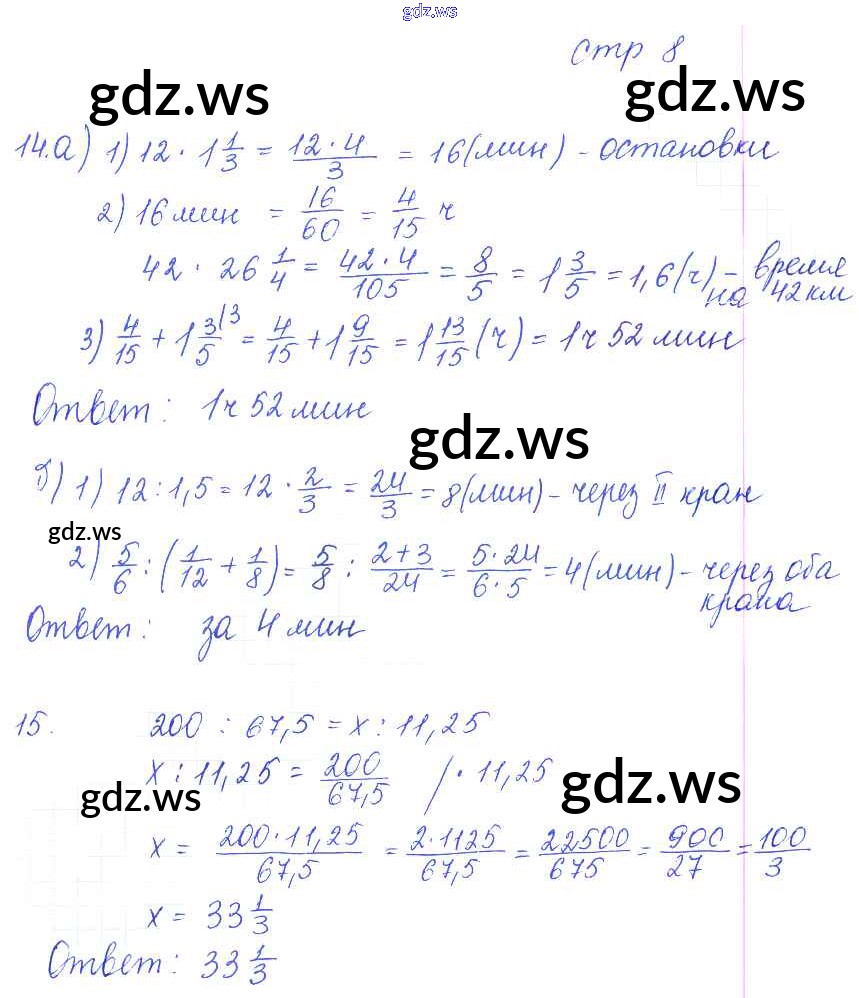 gdz.ws
стр 8
gdz.ws gdz.ws
14.а) 1) 12 · 1 1/3 = 12·4/3 = 16(мин) - остановки
2) 16 мин = 16/60 = 4/15 ч
42 · 26 1/4 = 42·4/105 = 8/5 = 1 3/5 = 1,6(ч) - время
на 42 км
3) 4/15 + 1 3/5 |3 = 4/15 + 1 9/15 = 1 13/15 (ч) = 1ч 52 мин
Ответ: 1ч 52 мин
gdz.ws
б) 1) 12 : 1,5 = 12 · 2/3 = 24/3 = 8(мин) - через II кран
gdz.ws
2) 5/6 : (1/12 + 1/8) = 5/8 : 2+3/24 = 5·24/6·5 = 4(мин) - через оба
крана
Ответ: за 4 мин
15. 200 : 67,5 = х : 11,25
х : 11,25 = 200/67,5 /· 11,25
gdz.ws gdz.ws
х = 200·11,25/67,5 = 2·1125/67,5 = 22500/675 = 900/27 = 100/3
х = 33 1/3
Ответ: 33 1/3